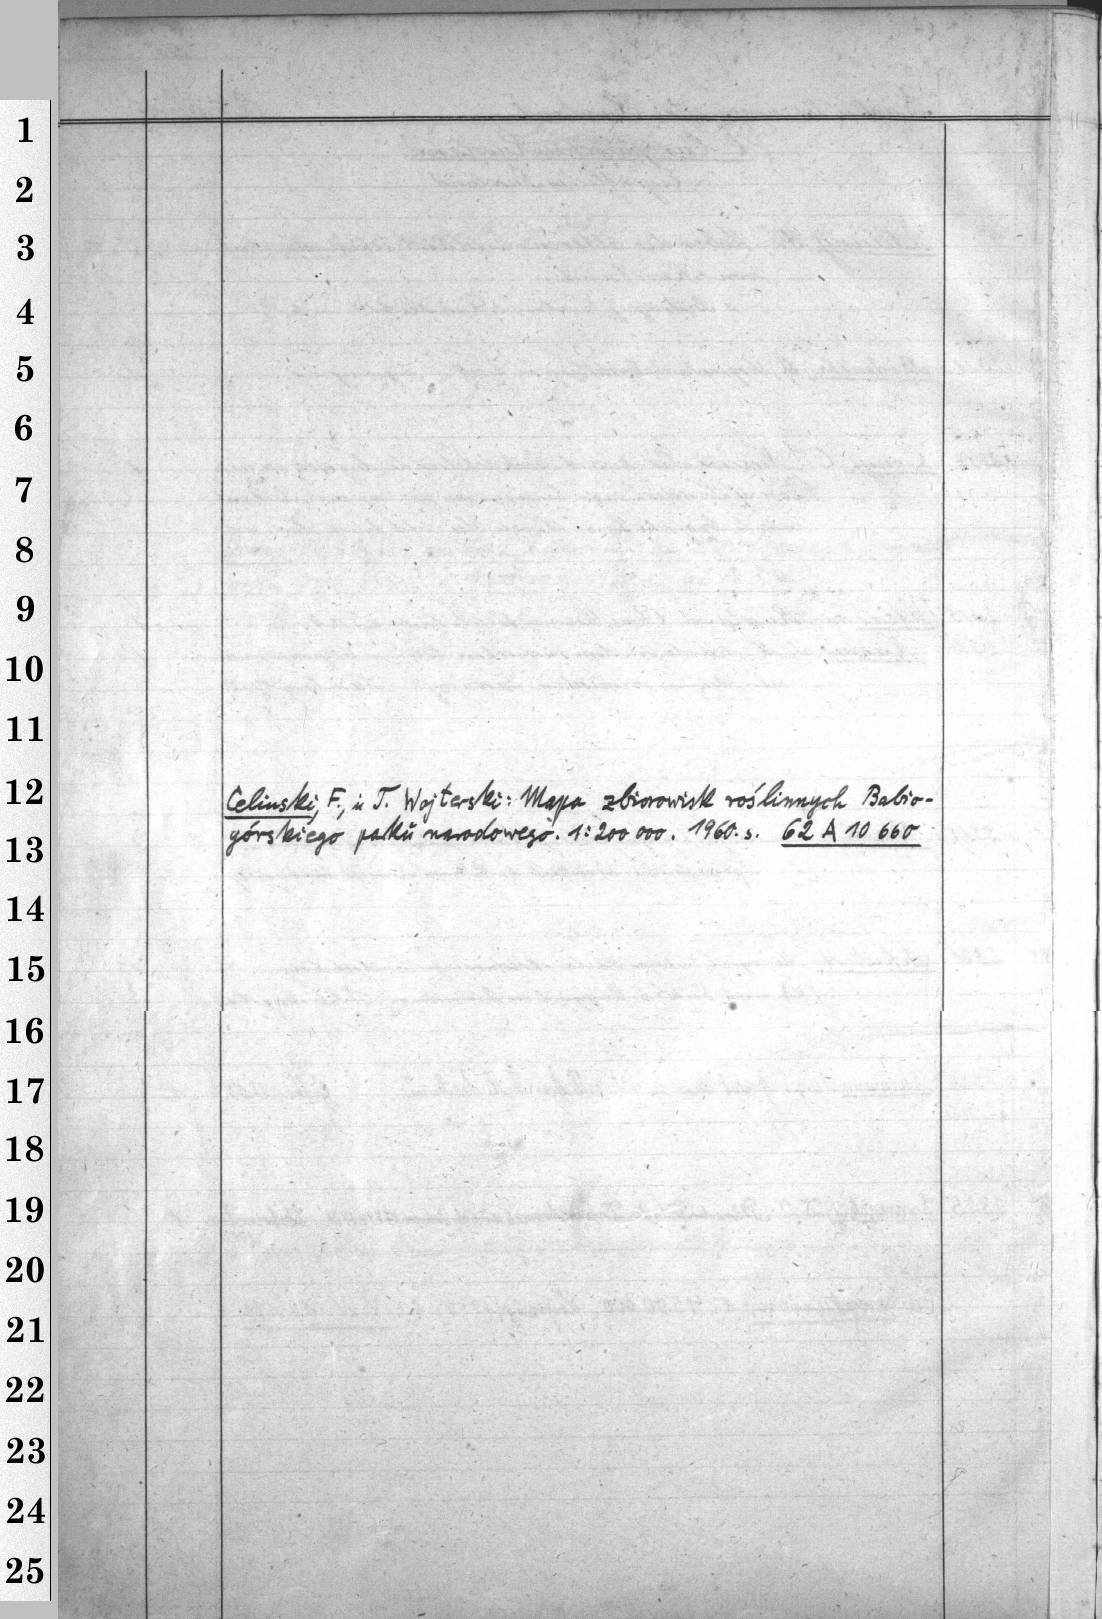 1
2
3
4
5
6
7
8
9
10
11
12
Celinski, F., i T. Wojterski: Mapa zbiorowisk roślinnych Babio-
13
górskiego parku narodowego. 1:200 000. 1960. s. 62 A 10 660
14
15
16
17
18
19
20
21
22
23
24
25